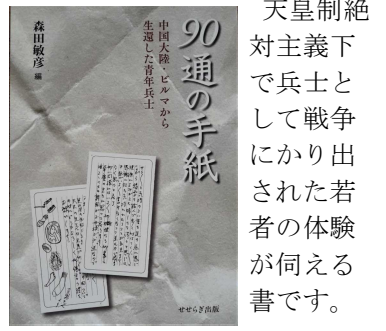 90通の手紙
中国大陸・ビルマから
生還した青年兵士
森田敏彦 編
せせらぎ出版
天皇制絶
対主義下
で兵士と
して戦争
にかり出
された若
者の体験
が伺える
書です。